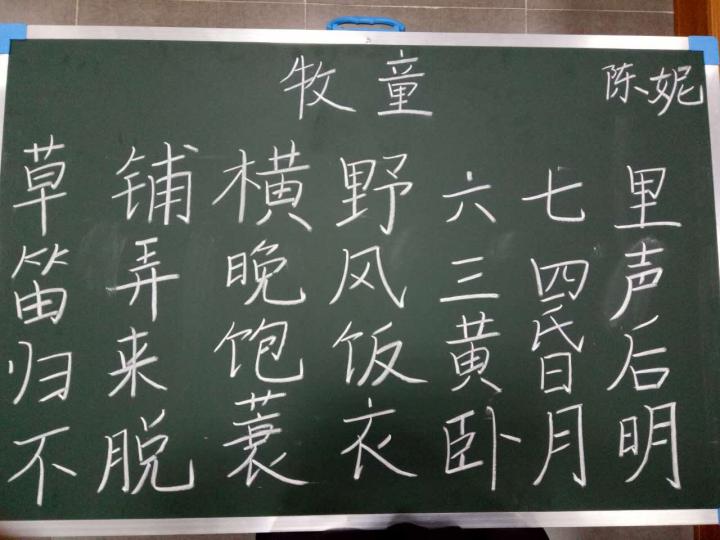 牧童
陈妮
草铺横野六七里
笛弄晚风三四声
归来饱饭黄昏后
不脱蓑衣卧月明